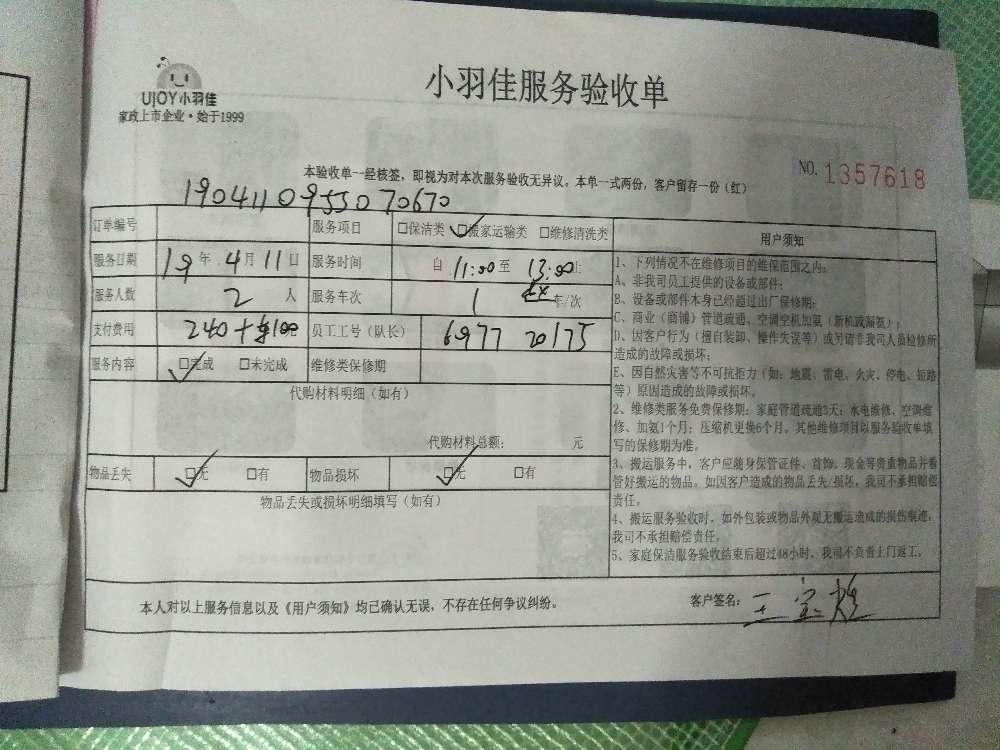 UJOY小羽佳
家政上市企业·始于1999
小羽佳服务验收单
本验收单一经核签，即视为对本次服务验收无异议。本单一式两份，客户留存一份（红）
NO. 1357618
1904110955070670
订单编号 服务项目 □保洁类 ☑搬家运输类 □维修清洗类
服务日期 19年 4月11日 服务时间 自 11:00至 13:00止
服务人数 2 人 服务车次 1 车/次
支付费用 240+100 员工工号（队长） 6977 20175
服务内容 ☑完成 □未完成 维修类保修期
代购材料明细（如有）
代购材料总额： 元
物品丢失 ☑无 □有 物品损坏 ☑无 □有
物品丢失或损坏明细填写（如有）
用户须知
1、下列情况不在维修项目的维保范围之内：
A、非我司员工提供的设备或部件；
B、设备或部件本身已经超过出厂保修期；
C、商业（商铺）管道疏通、空调空机加氨（新机或漏氨）；
D、因客户行为（擅自装卸、操作失误等）或另请非我司人员检修所
造成的故障或损坏；
E、因自然灾害等不可抗拒力（如：地震、雷电、火灾、停电、短路
等）原因造成的故障或损坏。
2、维修类服务免费保修期：家庭管道疏通3天；水电维修、空调维
修、加氨1个月；压缩机更换6个月。其他维修项目以服务验收单填
写的保修期为准。
3、搬运服务中，客户应随身保管证件、首饰、现金等贵重物品并看
管好搬运的物品。如因客户造成的物品丢失/损坏，我司不承担赔偿
责任。
4、搬运服务验收时，如外包装或物品外观无搬运造成的损伤痕迹，
我司不承担赔偿责任。
5、家庭保洁服务验收结束后超过48小时，我司不负责上门返工。
本人对以上服务信息以及《用户须知》均已确认无误，不存在任何争议纠纷。
客户签名：王宝